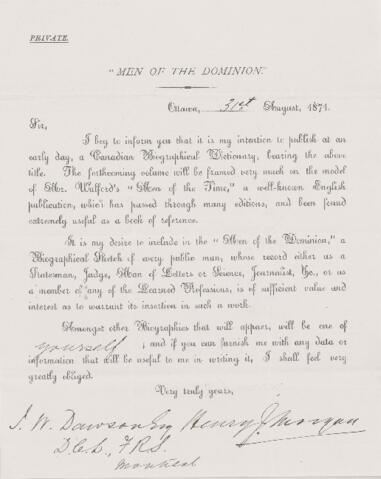 PRIVATE.
"MEN OF THE DOMINION."
Ottawa, 31st August, 1871.
Sir,
I beg to inform you that it is my intention to publish at an
early day, a Canadian Biographical Dictionary, bearing the above
title. The forthcoming volume will be framed very much on the model
of Mr. Walford's "Men of the Time," a well-known English
publication, which has passed through many editions, and been found
extremely useful as a book of reference.
It is my desire to include in the "Men of the Dominion," a
Biographical Sketch of every public man, whose record either as a
Statesman, Judge, Man of Letters or Science, Journalist, &c., or as
a member of any of the Learned Professions, is of sufficient value and
interest as to warrant its insertion in such a work.
Amongst other Biographies that will appear, will be one of
yourself ; and if you can furnish me with any data or
information that will be useful to me in writing it, I shall feel very
greatly obliged.
Very truly yours,
J. W. Dawson Esq Henry J. Morgan
D.C.L., F.R.S.
Montreal